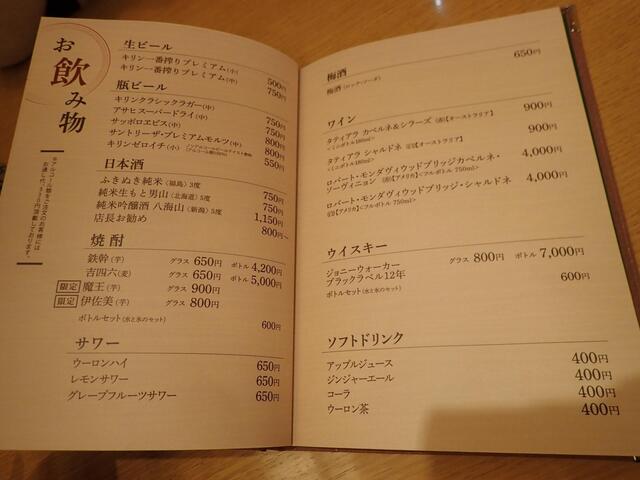 お飲み物
※アルコール類をご注文のお客様には
お通し代
頂戴しております。
生ビール
キリン一番搾りプレミアム(小) 500円
キリン一番搾りプレミアム(中) 750円
瓶ビール
キリンクラシックラガー(中) 750円
アサヒスーパードライ(中) 750円
サッポロエビス(中) 800円
サントリーザ・プレミアムモルツ(中) 800円
キリンゼロイチ(小) 550円
日本酒
ふきぬき純米〈福島〉3度 750円
純米生もと男山〈北海道〉5度 750円
純米吟醸酒 八海山〈新潟〉5度 1,150円
店長お勧め 800円~
焼酎
鉄幹(芋) グラス 650円 ボトル 4,200円
吉四六(麦) グラス 650円 ボトル 5,000円
限定 魔王(芋) グラス 900円
限定 伊佐美(芋) グラス 800円
ボトルセット(水と氷のセット) 600円
サワー
ウーロンハイ 650円
レモンサワー 650円
グレープフルーツサワー 650円
梅酒
梅酒(ロック・ソーダ) 650円
ワイン
タティアラ カベルネ&シラーズ (赤)【オーストラリア】 900円
<ミニボトル180ml>
タティアラ シャルドネ (白)【オーストラリア】 900円
<ミニボトル180ml>
ロバート・モンダヴィウッドブリッジカベルネ・ 4,000円
ソーヴィニョン (赤)【アメリカ】<フルボトル 750ml>
ロバート・モンダヴィウッドブリッジ・シャルドネ 4,000円
(白)【アメリカ】<フルボトル 750ml>
ウイスキー
ジョニーウォーカー グラス 800円 ボトル 7,000円
ブラックラベル12年
ボトルセット(水と氷のセット) 600円
ソフトドリンク
アップルジュース 400円
ジンジャーエール 400円
コーラ 400円
ウーロン茶 400円